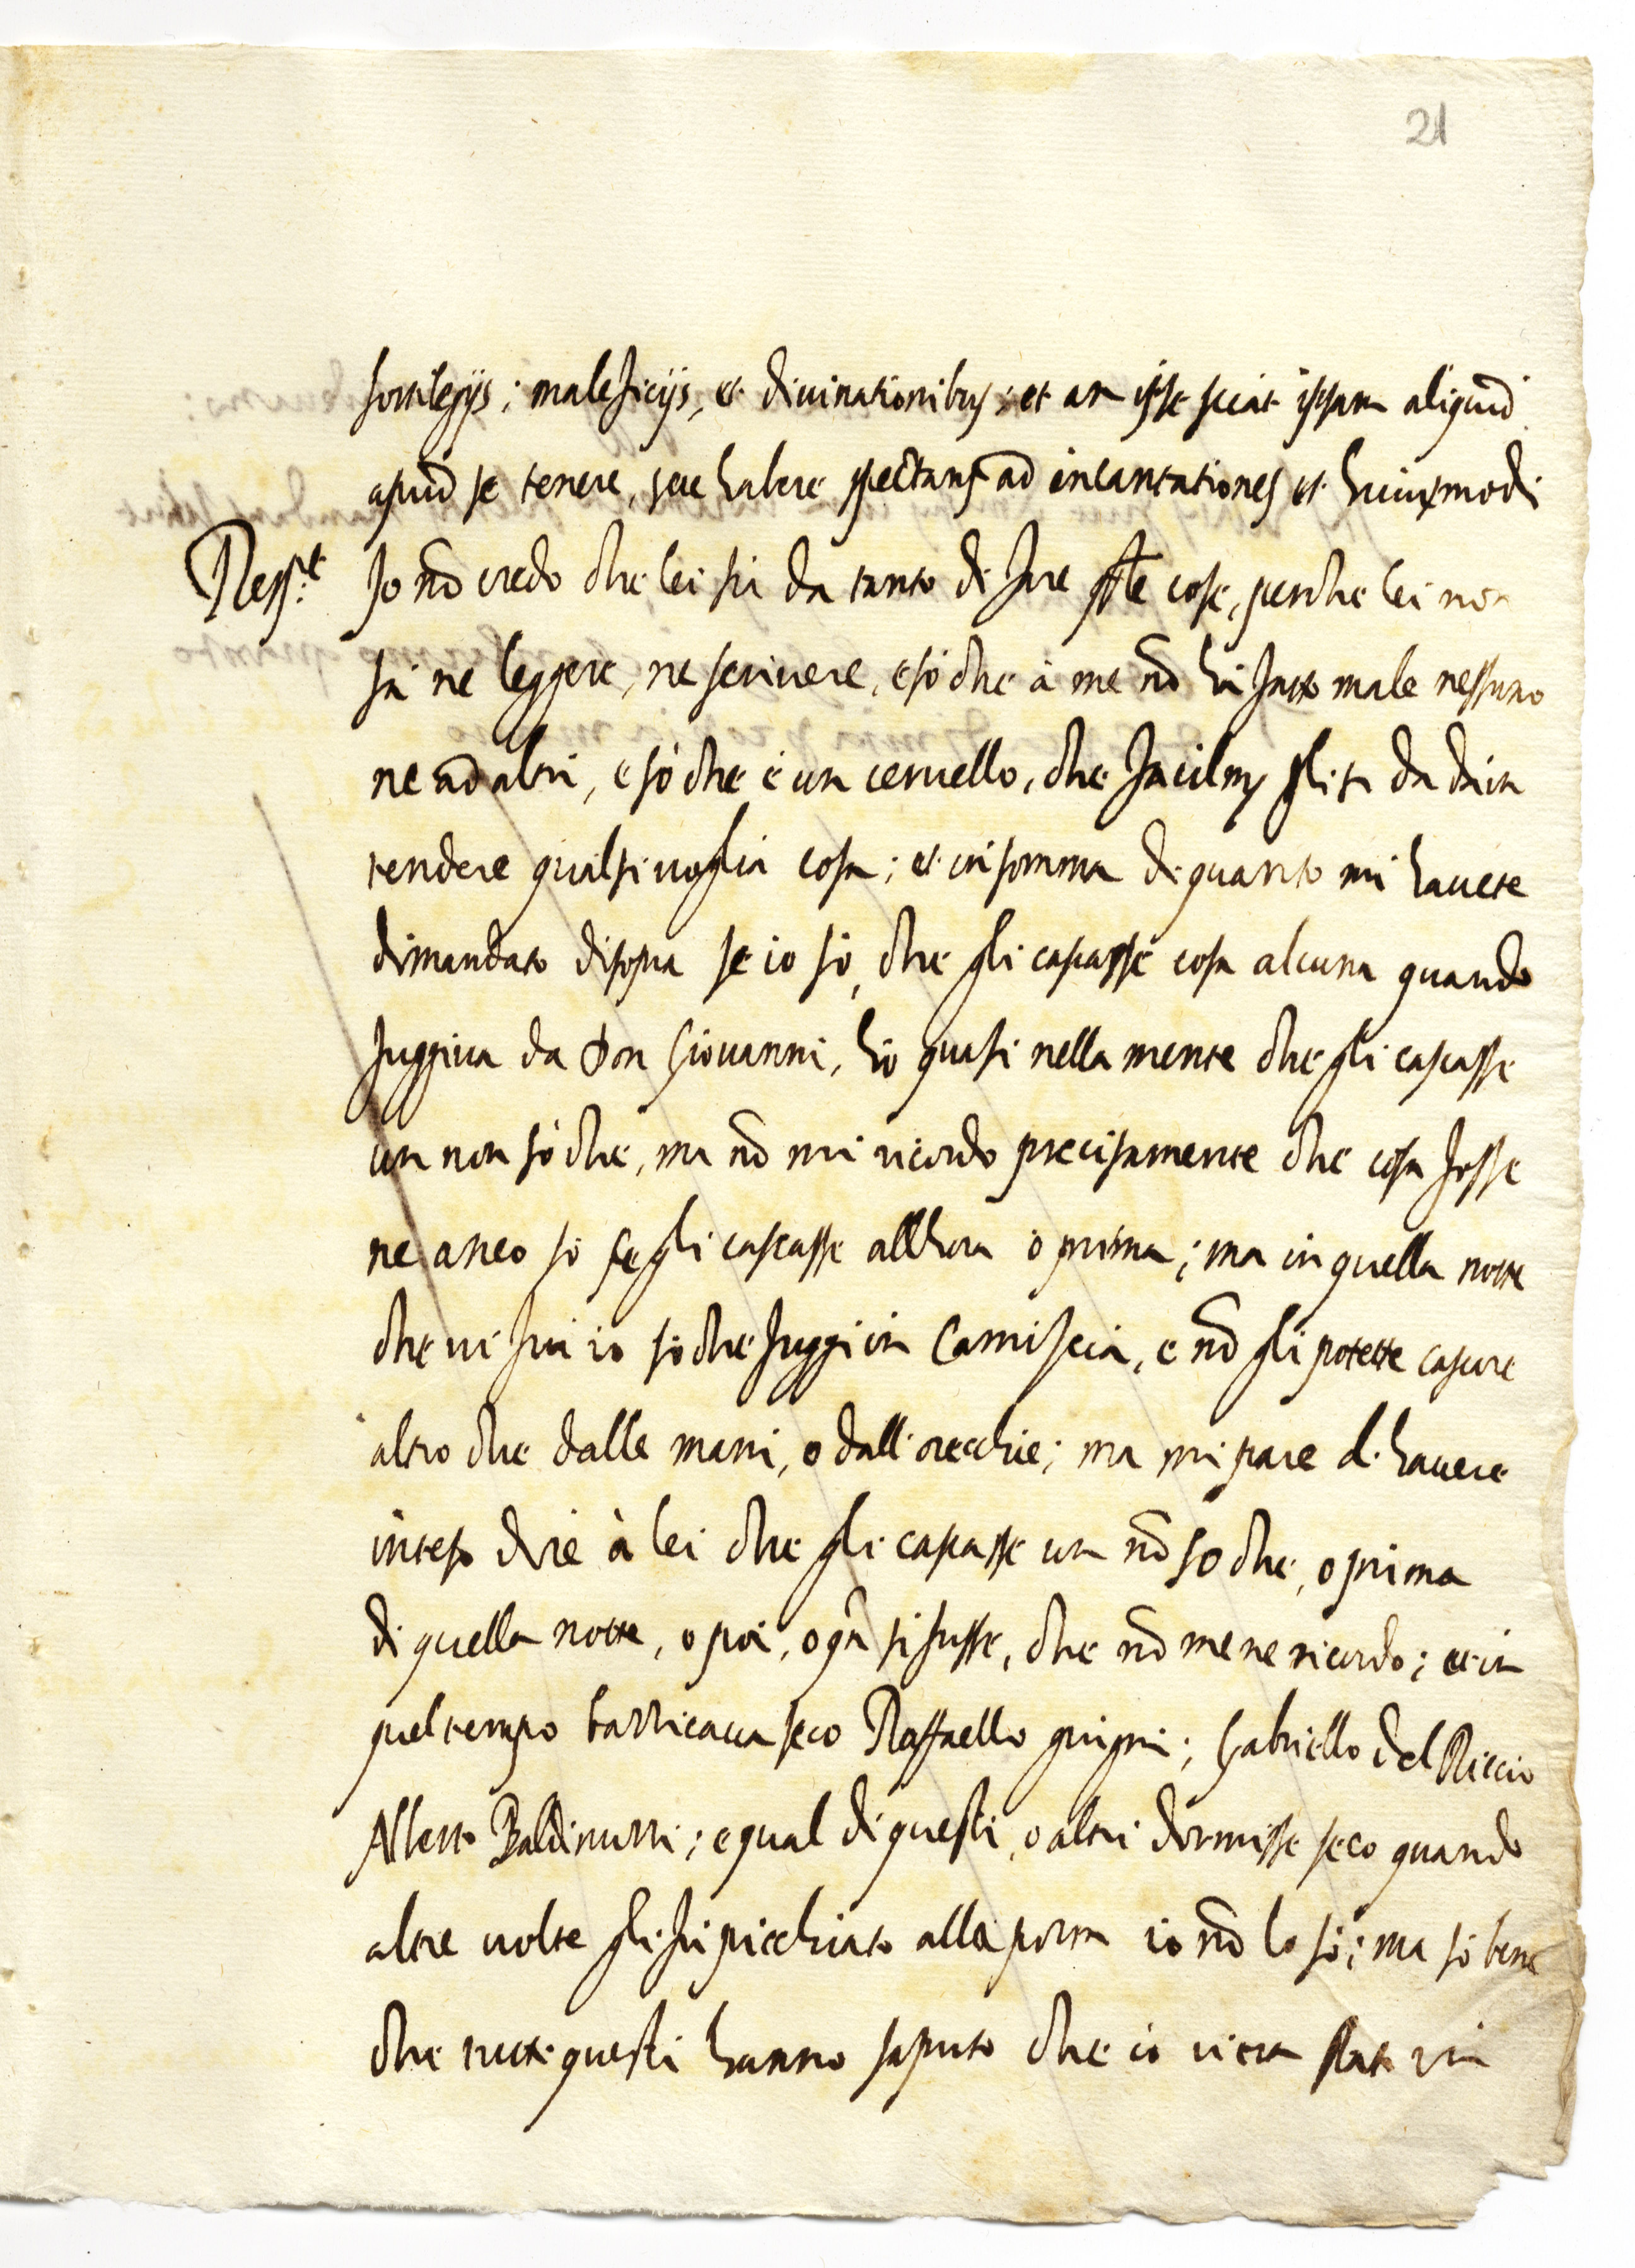 21
sortilegijs; maleficijs, et divinationibus; et an ipse sciat ipsam aliquid
apud se tenere, seu habere spectans ad incantationes et huiusmodi
Resp.t Io nō credo che lei sia da tanto di fare q̄ste cose, perche lei non
sà ne leggere, ne scrivere, e sò che à me nō hà fatto male nessuno
ne ad altri, e sò che è un cervello, che facilmͤ gli si da da in
tendere qualsivoglia cosa; et in somma di quanto mi havete
dimandato disopra se io sò, che gli cascasse cosa alcuna quando
fuggiva da Don Giovanni, hò quasi nella mente che gli cascasse
un non sò che, ma nō mi ricordo precisamente che cosa fosse
ne anco sò se gli cascasse allhora ò prima; ma in quella notte
che vi fui io sò che fuggi in Camiscia, e nō gli potette cascare
altro che dalle mani, o dall'orecchie; ma mi pare d'havere
inteso dire à lei che gli cascasse un nō so che, o prima
di quella notte, o poi, o qn̄ si fusse, che nō me ne ricordo; et in
quel tempo barricava seco Raffaello; Gabriello del Riccio
Alberto Baldinucci; e qual di questi, o altri dormisse seco quando
altre volte gli fù picchiato alla porta io nō lo sò; ma sò bene
che tutti questi hanno saputo che io vi era stato in